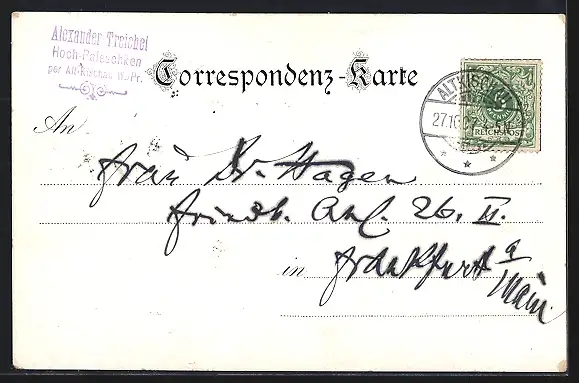 Alexander Treichel
Hoch-Paleschken
per Alt-Kischau W.-Pr.
Correspondenz-Karte
ALTKISCH
27.10.97
REICHSPOST
An
Frau Dr. Hagen
Friedb. Anl. 26. II.
in Frankfurt a
Main